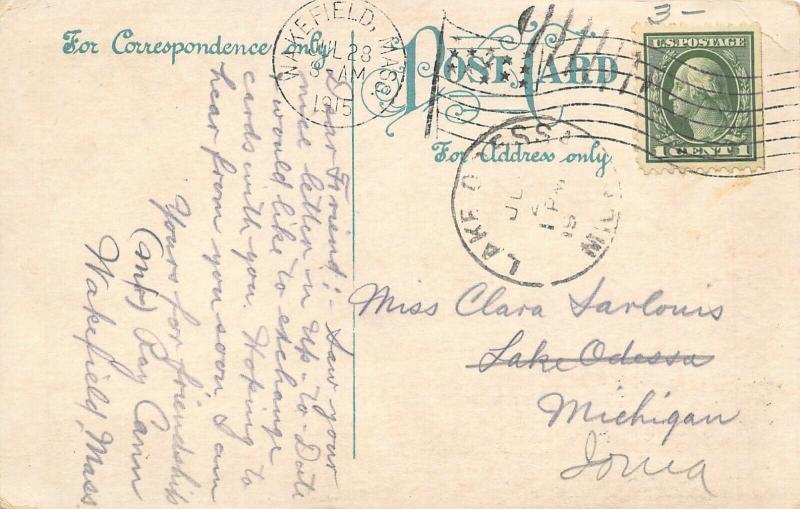 For Correspondence only.
POST CARD
For Address only.
WAKEFIELD, MASS.
JUL 28
8 AM
1915
3-
U.S. POSTAGE
1 CENT 1
LAKE ODESSA
MICH.
JUL
PM
15
Dear Friend:- Saw your
nice letter in Up-to-Date
& would like to exchange
cards with you. Hoping to
hear from you soon I am
Yours for friendship
(Mr) Ray Cann
Wakefield, Mass.
Miss Clara Sarlouis
Lake Odessa
Michigan
Ionia